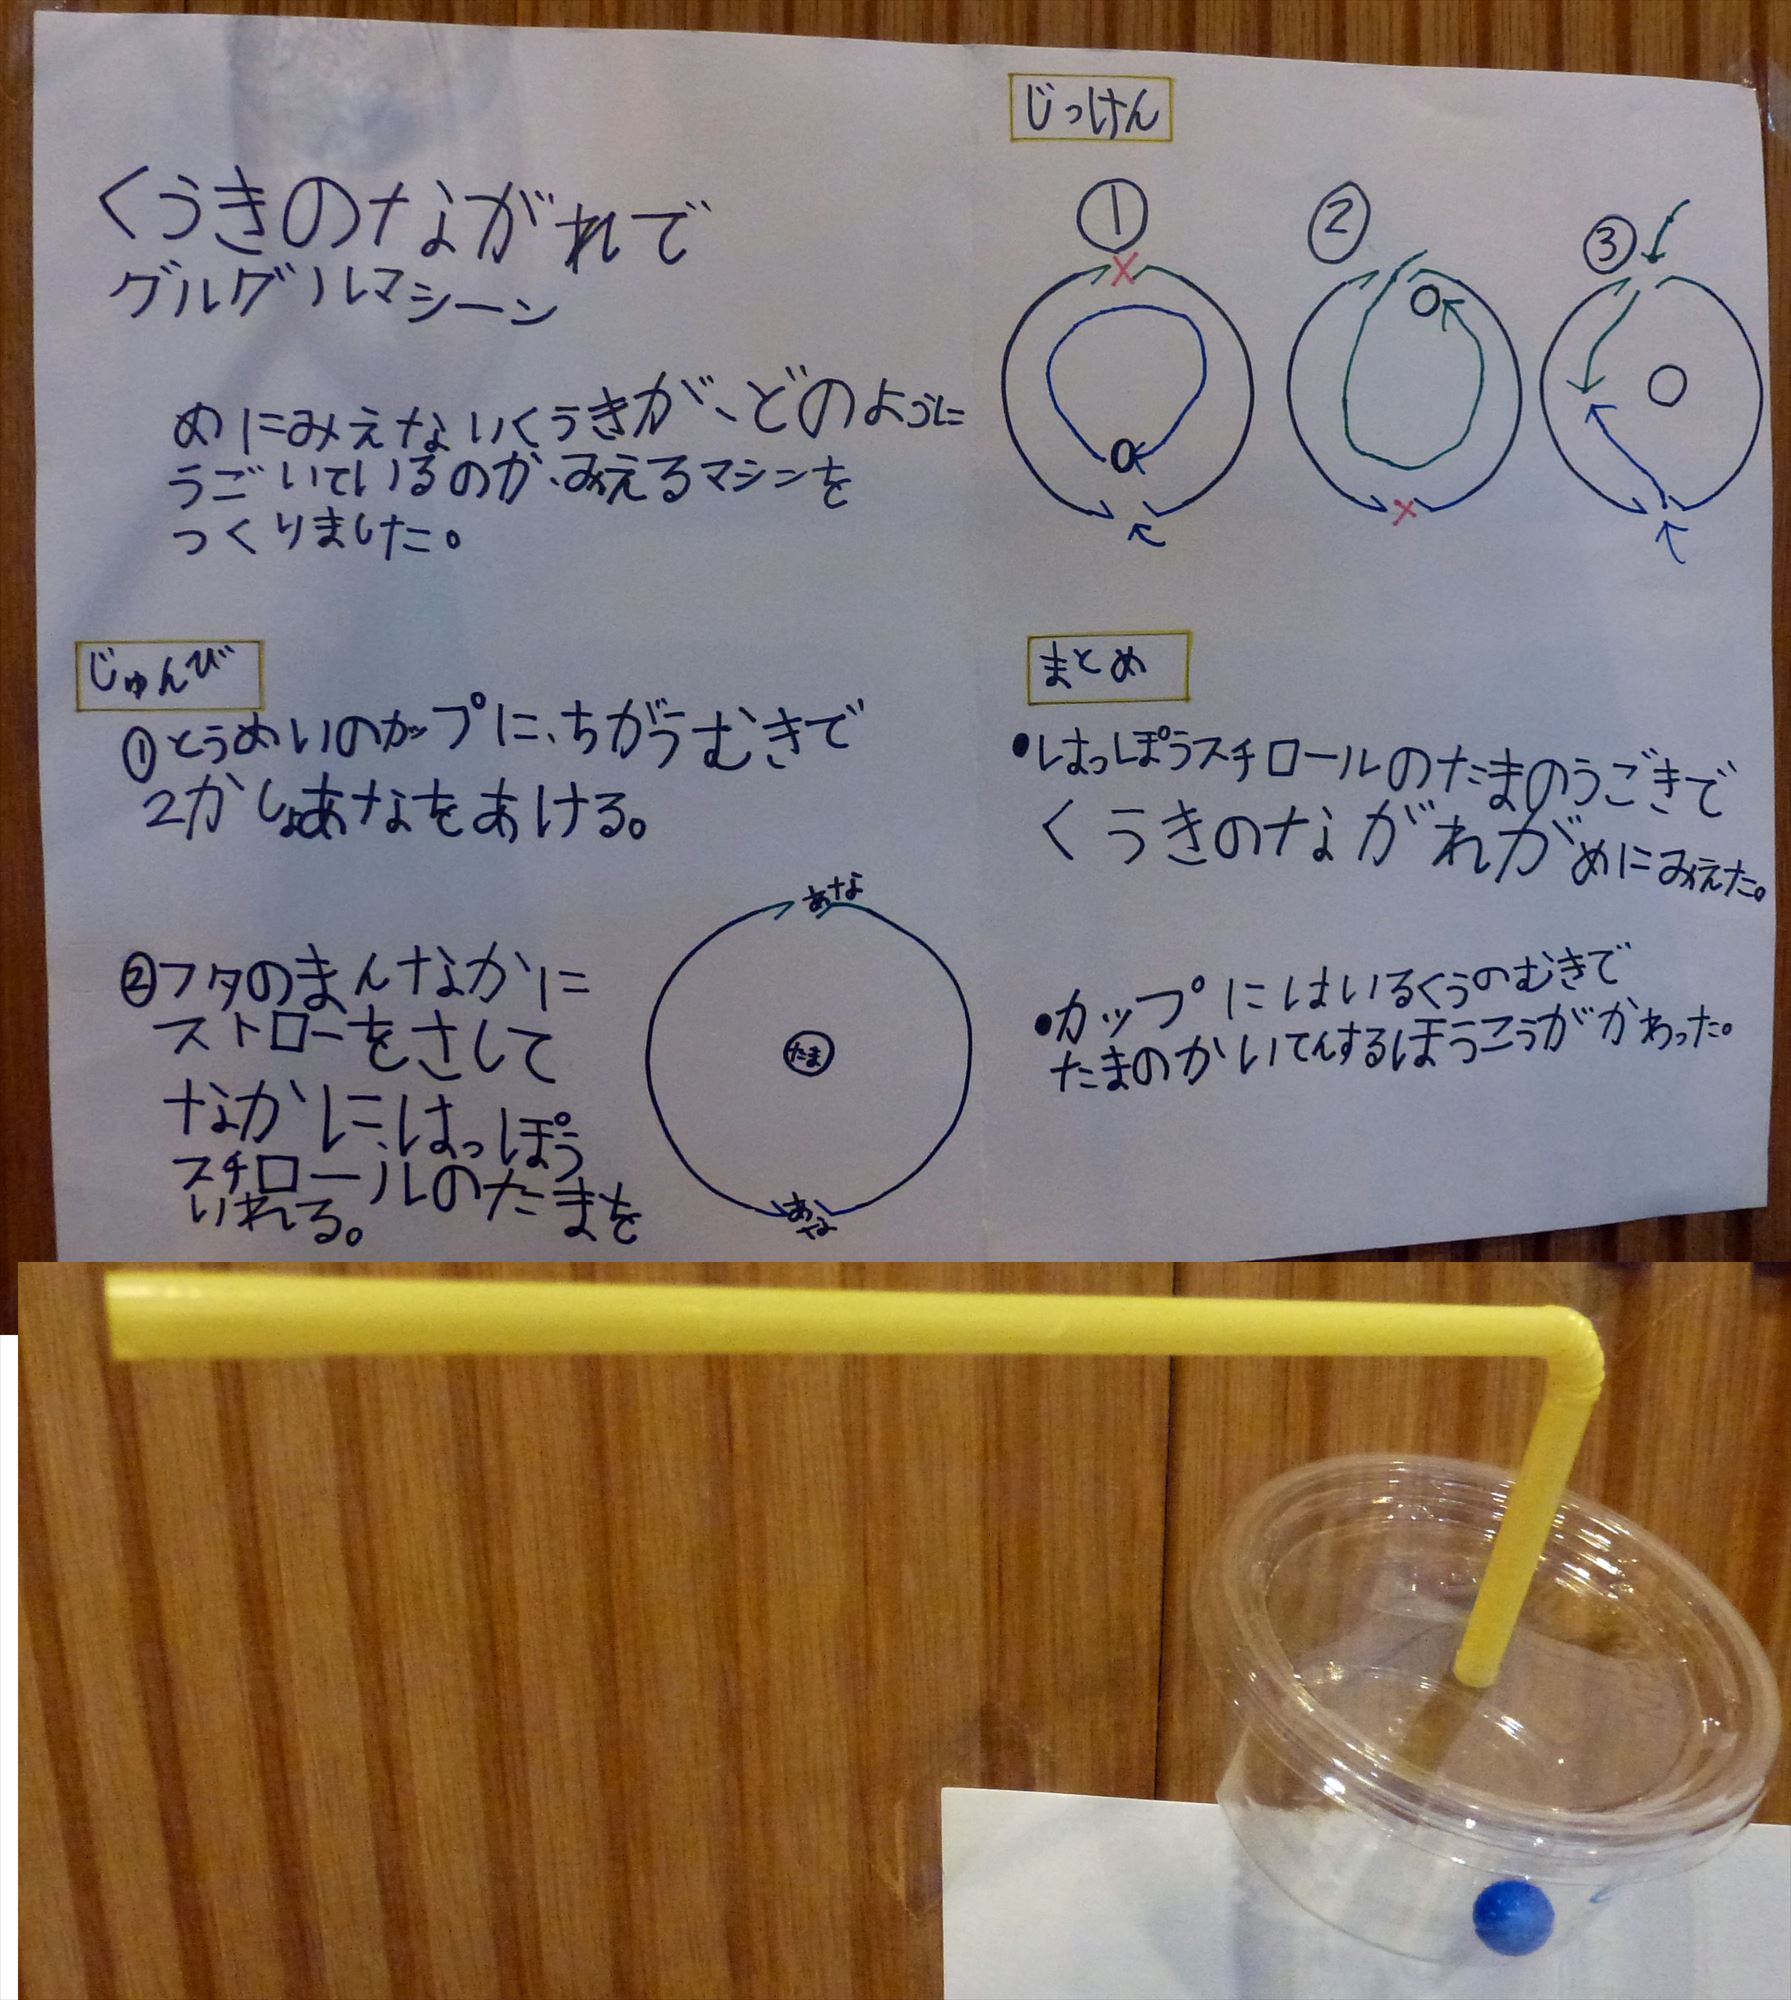 くうきのながれで
グルグルマシーン
めにみえないくうきが、どのように
うごいているのか、みえるマシンを
つくりました。
じゅんび
①とうめいのカップに、ちがうむきで
2かしょあなをあける。
②フタのまんなかに
ストローをさして
なかに、はっぽう
スチロールのたまを
いれる。
あな
たま
あな
じっけん
① ② ③
×
×
まとめ
●はっぽうスチロールのたまのうごきで
くうきのながれがめにみえた。
●カップにはいるくうのむきで
たまのかいてんするほうこうがかわった。